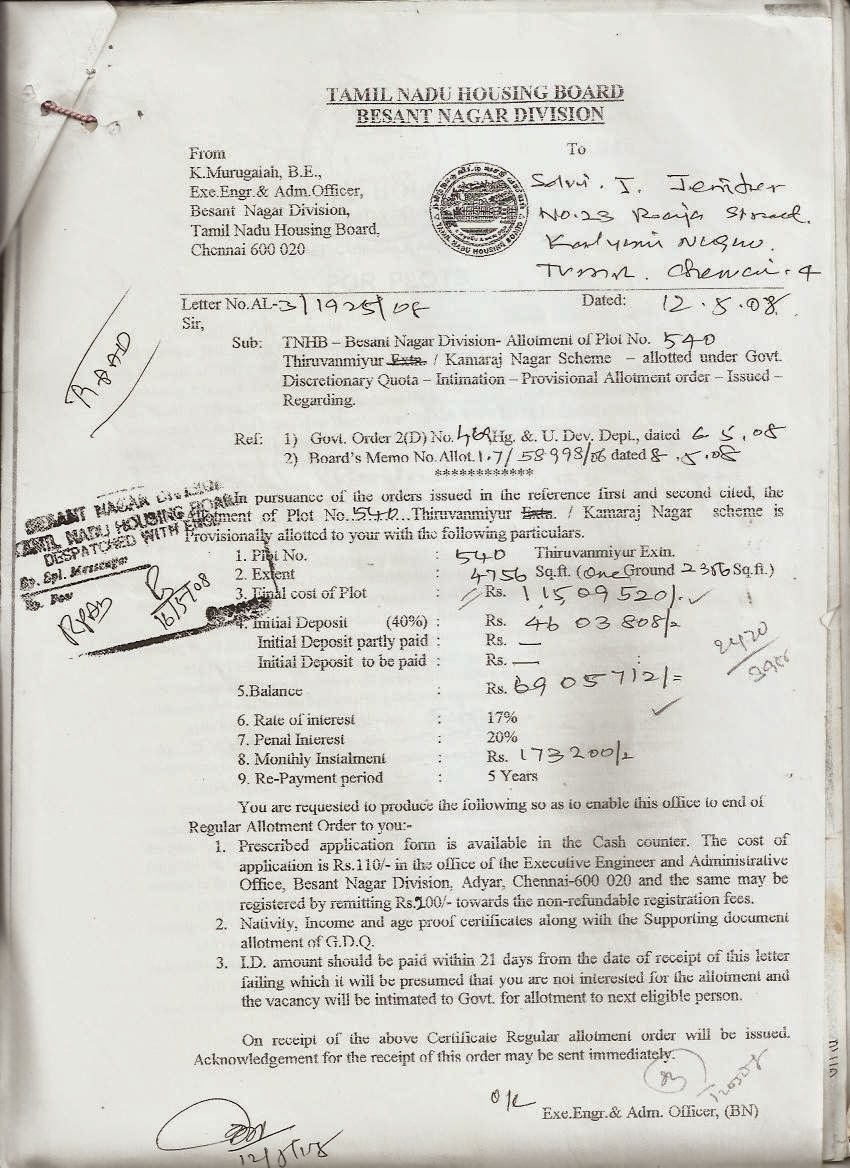 TAMIL NADU HOUSING BOARD
BESANT NAGAR DIVISION
From
K.Murugaiah, B.E.,
Exe.Engr.& Adm.Officer,
Besant Nagar Division,
Tamil Nadu Housing Board,
Chennai 600 020
To
Selvi. J.
No.23 Street
Chennai. 4
TAMIL NADU HOUSING BOARD
Letter No.AL-3/1925/08 Dated: 12.5.08
Sir,
Sub: TNHB – Besant Nagar Division- Allotment of Plot No. 540
Thiruvanmiyur Extn. / Kamaraj Nagar Scheme – allotted under Govt.
Discretionary Quota – Intimation – Provisional Allotment order – Issued –
Regarding.
RPAD
Ref: 1) Govt. Order 2(D) No. Hg. &. U. Dev. Dept., dated 6.5.08
2) Board's Memo No.Allot.1.7/58998/06 dated 8.5.08
************
In pursuance of the orders issued in the reference first and second cited, the
Allotment of Plot No..540...Thiruvanmiyur Extn. / Kamaraj Nagar scheme is
Provisionally allotted to your with the following particulars.
BESANT NAGAR DIVISION
TAMIL NADU HOUSING BOARD
DESPATCHED WITH
By. Spl. Messenger
RPAD
16/5/08
1. Plot No. : 540 Thiruvanmiyur Extn.
2. Extent : 4756 Sq.ft. (One Ground 2356 Sq.ft.)
3. Final cost of Plot : Rs. 11509520/-
4. Initial Deposit (40%) : Rs. 4603808/-
Initial Deposit partly paid : Rs. —
Initial Deposit to be paid : Rs. — :
5.Balance Rs. 6905712/=
2420
6. Rate of interest : 17%
7. Penal Interest : 20%
8. Monthly Instalment : Rs. 173200/-
9. Re-Payment period : 5 Years
You are requested to produce the following so as to enable this office to end of
Regular Allotment Order to you:-
1. Prescribed application form is available in the Cash counter. The cost of
application is Rs.110/- in the office of the Executive Engineer and Administrative
Office, Besant Nagar Division, Adyar, Chennai-600 020 and the same may be
registered by remitting Rs.200/- towards the non-refundable registration fees.
2. Nativity, Income and age proof certificates along with the Supporting document
allotment of G.D.Q.
3. I.D. amount should be paid within 21 days from the date of receipt of this letter
failing which it will be presumed that you are not interested for the allotment and
the vacancy will be intimated to Govt. for allotment to next eligible person.
On receipt of the above Certificate Regular allotment order will be issued.
Acknowledgement for the receipt of this order may be sent immediately.
Exe.Engr.& Adm. Officer, (BN)